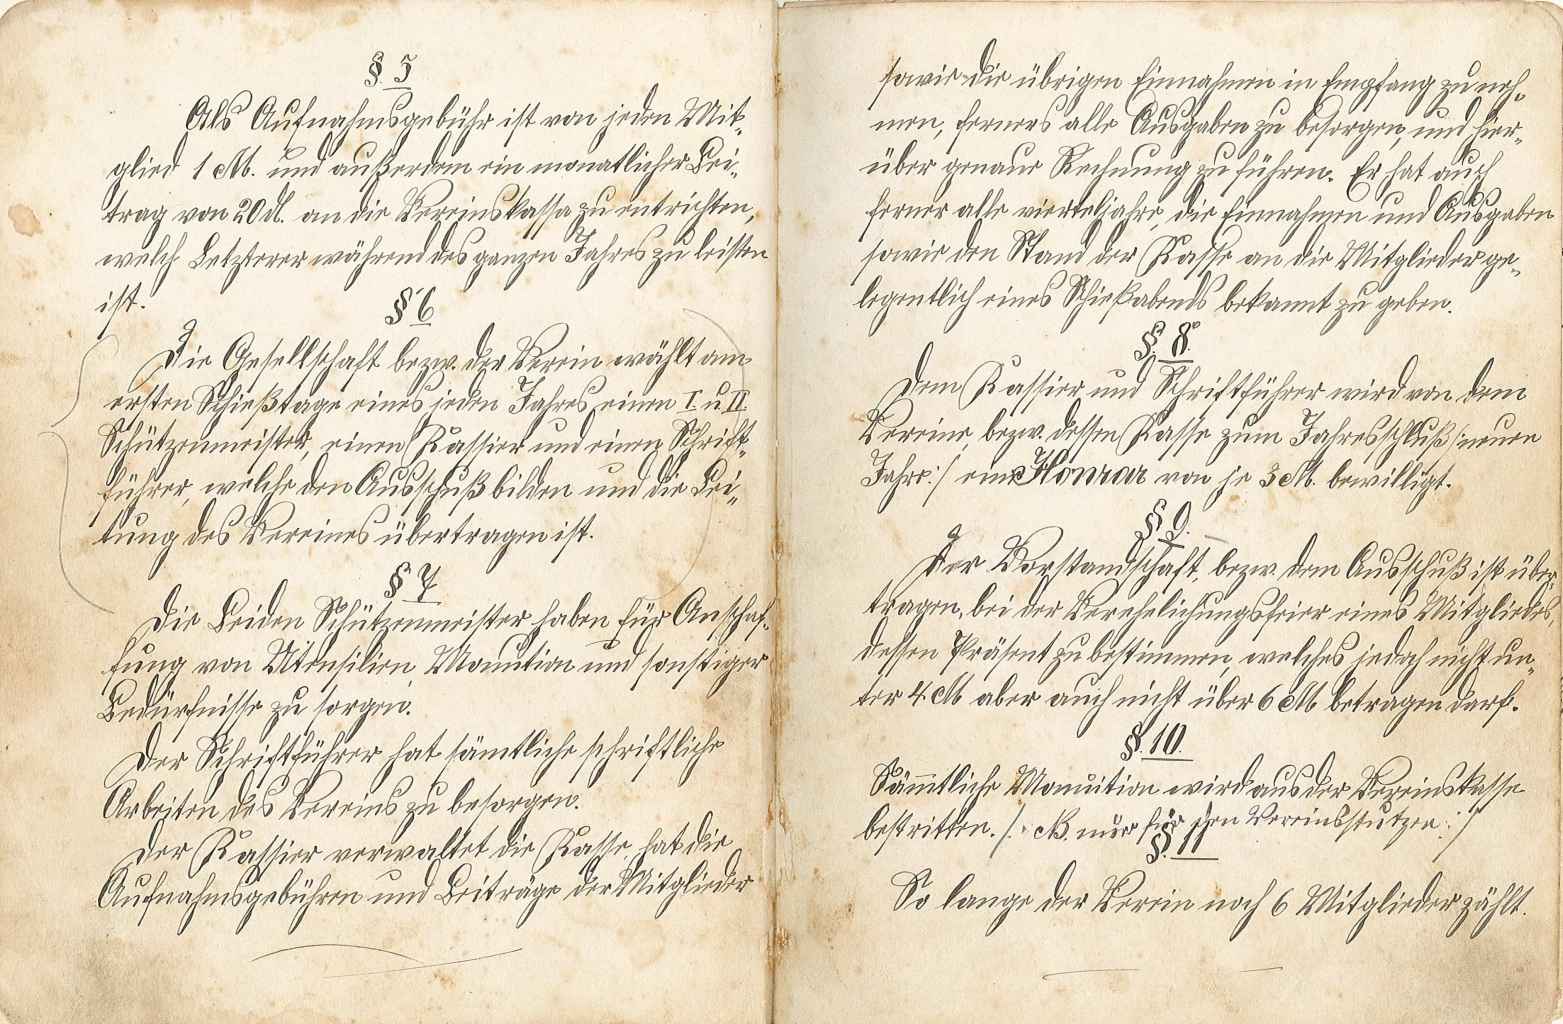 § 5
Als Aufnahmsgebühr ist von jeden Mit-
glied 1 M. und außerdem ein monatlicher Bei-
trag von 20 dl. an die Vereinskassa zu entrichten,
welch Letzterer während des ganzen Jahres zu leisten
ist.
§ 6
Die Gesellschaft bezw. der Verein wählt am
ersten Schießtage eines jeden Jahres einen I. u II.
Schützenmeister, einen Kassier und einen Schrift-
führer, welche den Ausschuß bilden und die Lei-
tung des Vereines übertragen ist.
§ 7
Die Beiden Schützenmeister haben für Anschaf-
fung von Utensilien, Monution und sonstiger
Bedürfnisse zu sorgen.
Der Schriftführer hat sämtliche schriftliche
Arbeiten des Vereins zu besorgen.
Der Kassier verwaltet die Kasse, hat die
Aufnahmsgebühren und Beiträge der Mitglieder
sowie die übrigen Einnahmen in Empfang zu neh-
men, ferners alle Ausgaben zu besorgen, und hier-
über genaue Rechnung zu führen. Er hat auch
ferner alle vierteljahre, die Einnahmen und Ausgaben
sowie den Stand der Kasse an die Mitglieder ge-
legentlich eines Schießabends bekannt zu geben.
§ 8.
Dem Kassier und Schriftführer wird von dem
Vereine, bezw. dessen Kasse zum Jahresschluß /:neuen
Jahre:/ ein Honrar von je 3 M. bewilligt.
§ 9.
Der Vorstandschaft, bezw. dem Ausschuß ist über-
tragen, bei der Verehelichungsfeier eines Mitgliedes,
dessen Präsent zu bestimmen, welches jedoch nicht un-
ter 4 M aber auch nicht über 6 M betragen darf.
§. 10.
Sämmtliche Monuition wird aus der Vereinskasse
bestritten. /:. NB. nur für den Vereinsstutzen:/
§. 11
So lange der Verein noch 6 Mitglieder zählt.